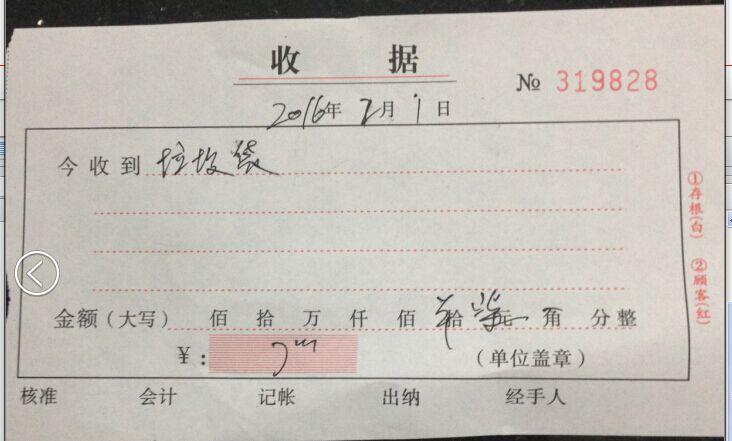 收 据
№ 319828
2016年 2月 1日
今收到 垃圾袋
金额(大写) 佰 拾 万 仟 佰 拾 元 角 分整
¥:
(单位盖章)
核准 会计 记帐 出纳 经手人
①存根(白) ②顾客(红)